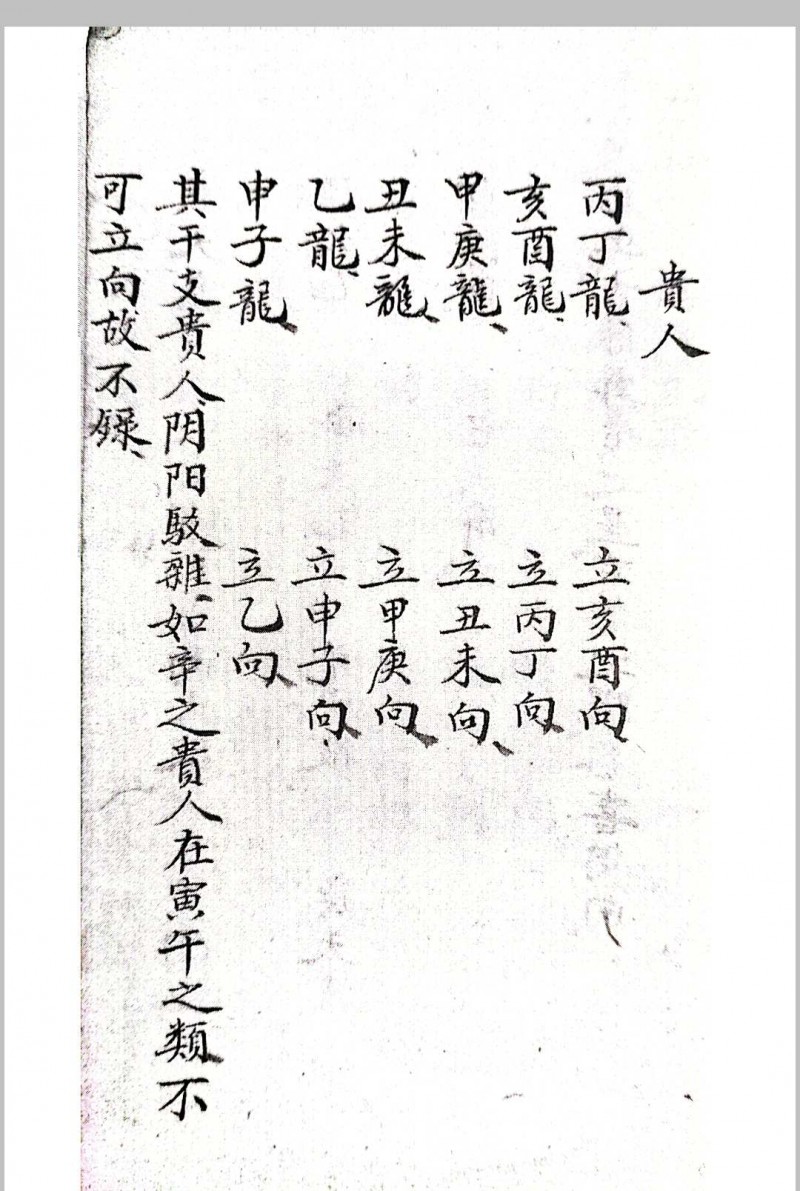 貴人
丙丁龍、立亥酉向、
亥酉龍、立丙丁向、
甲庚龍、立丑未向、
丑未龍、立甲庚向、
乙龍、立申子向、
申子龍、立乙向、
其干支貴人、阴阳駁雜、如辛之貴人在寅午之類不
可立向、故不錄、